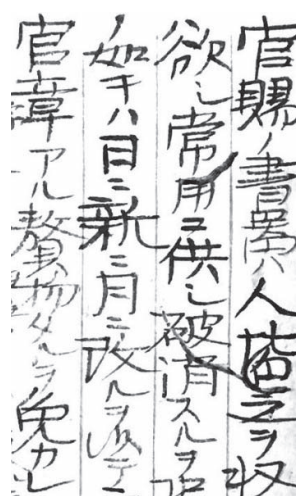 官賜ノ書畧ハ人皆之ヲ収
欲シ常用ニ供シ破消スルヲ
如キハ日ニ新ニ月ニ改ルヲ以テ
官章アル贅物タルヲ免カレ